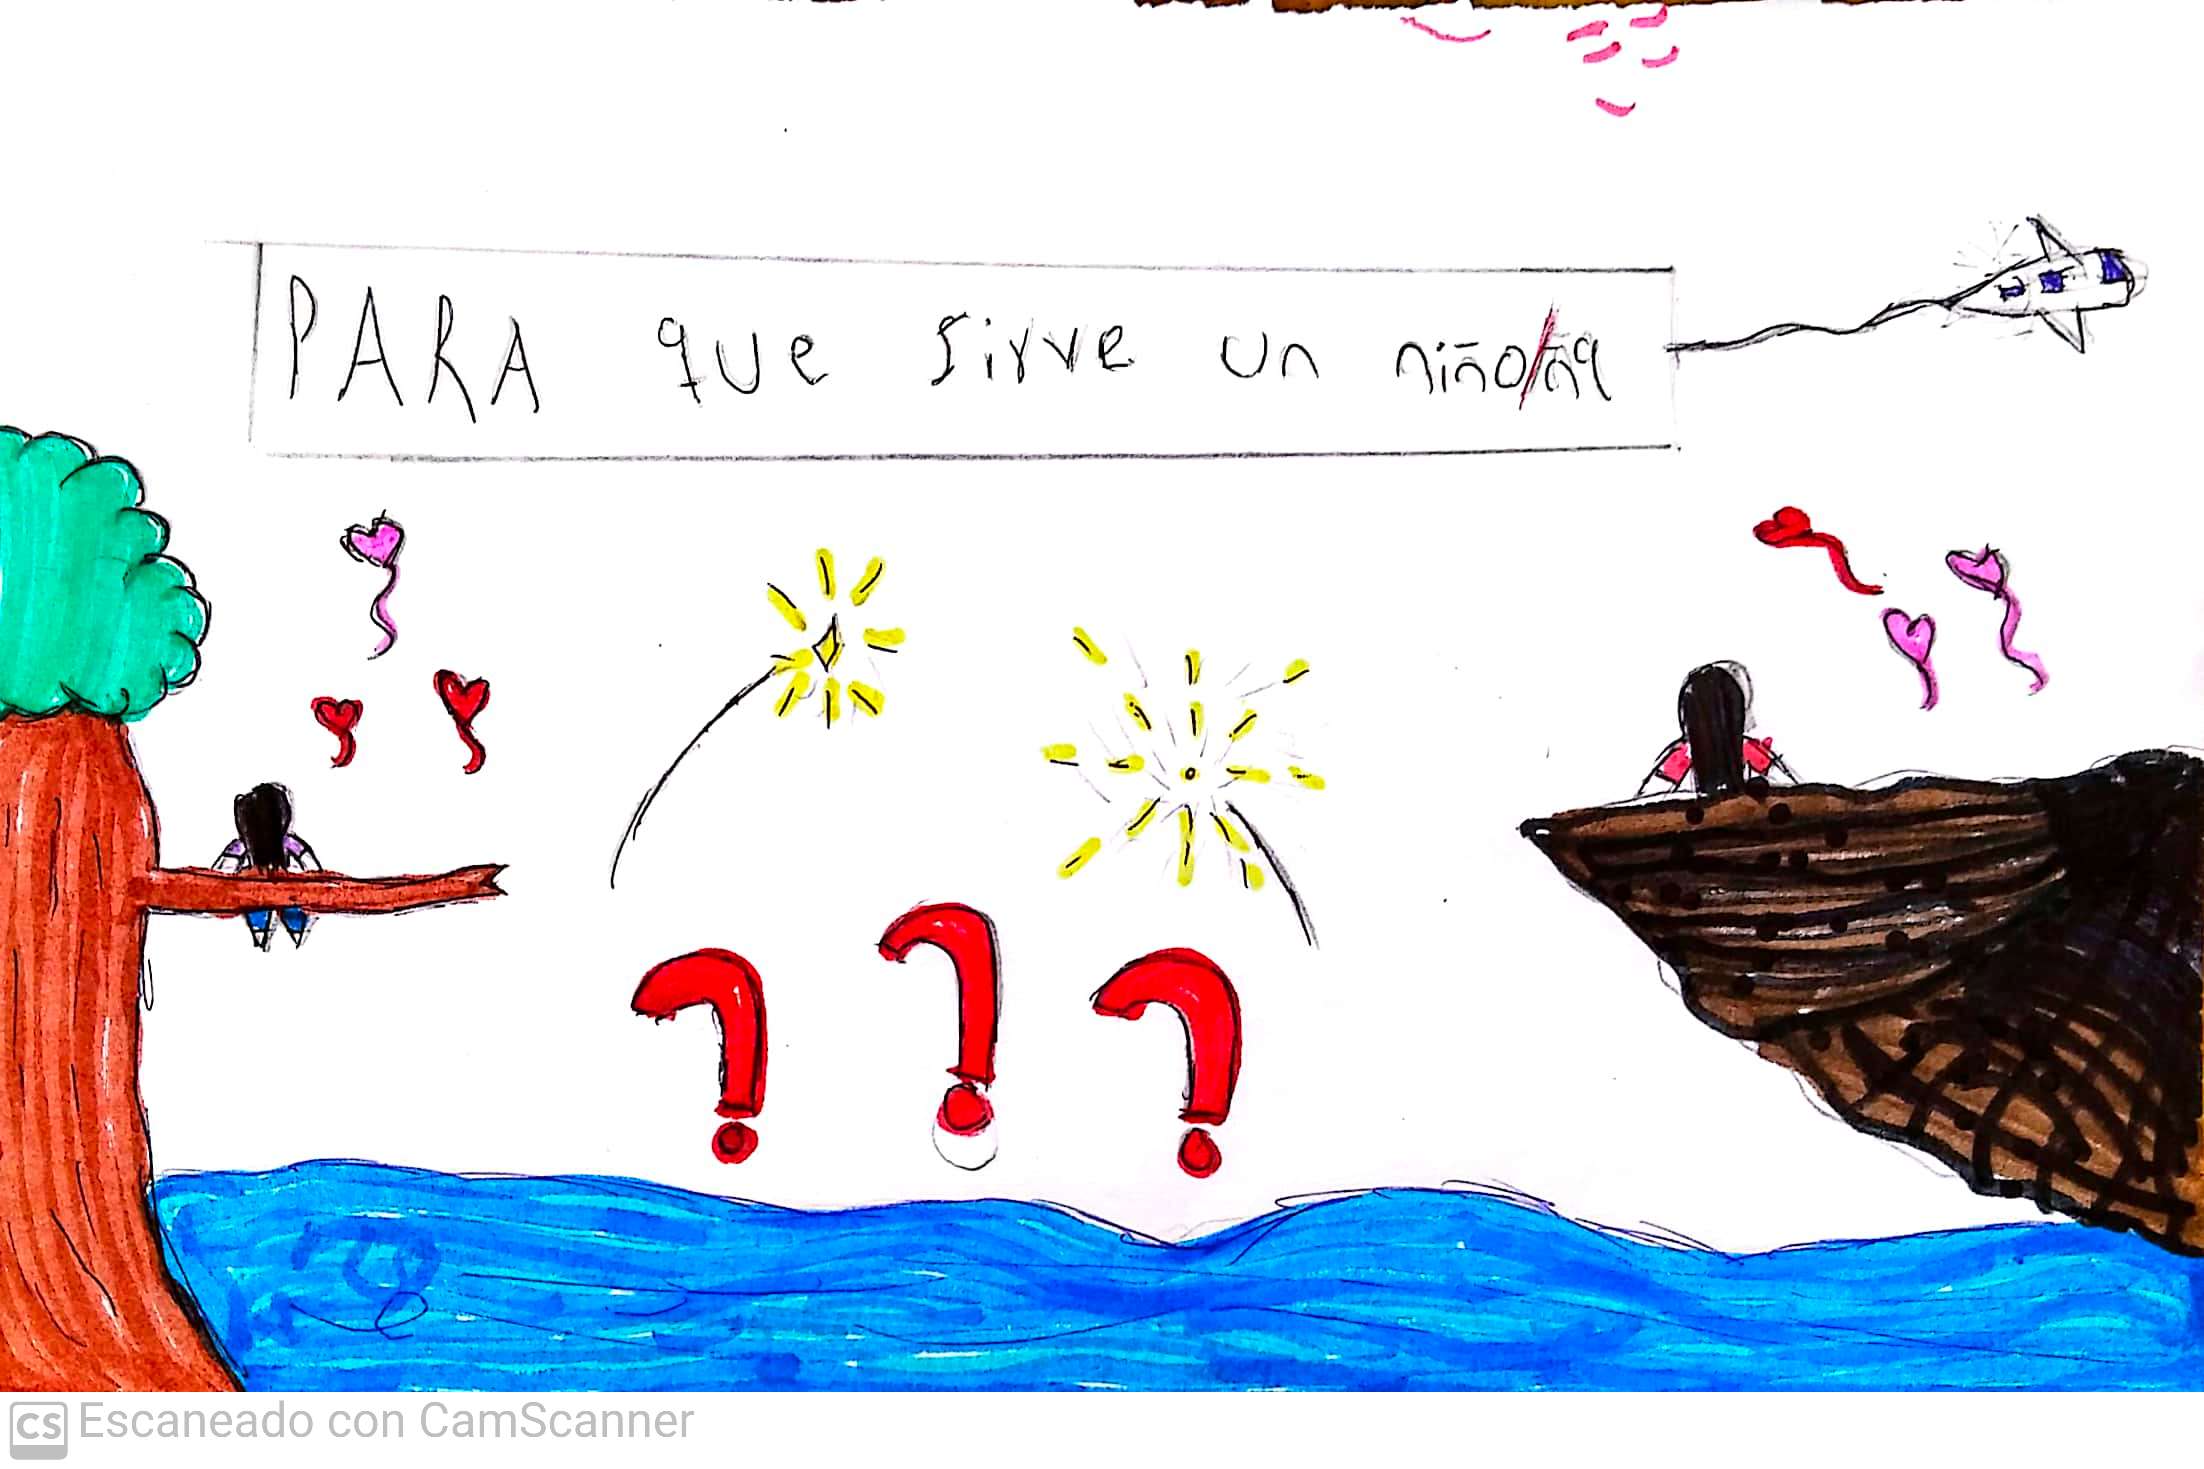 PARA que sirve un niño/ña
? ? ?
CS Escaneado con CamScanner